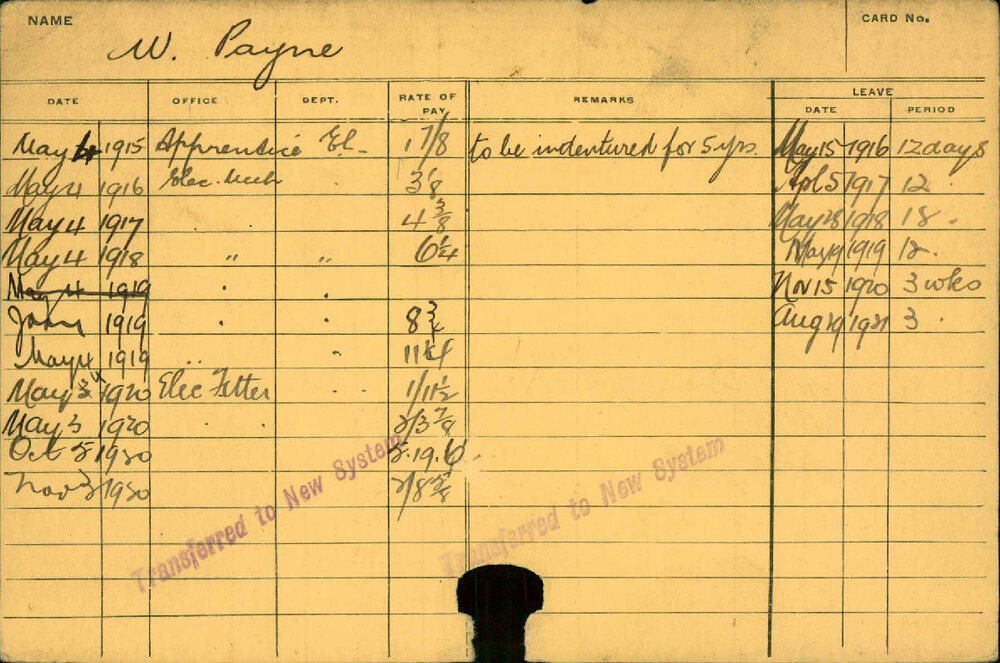 NAME W. Payne CARD No.
DATE OFFICE DEPT. RATE OF PAY. REMARKS LEAVE
DATE PERIOD
May 4 1915 Apprentice El. 1 7/8 to be indentured for 5 yrs. May 15 1916 12 days
May 4 1916 Elec. Mech 3 1/8 Apl 5 1917 12
May 4 1917 4 3/8 May 28 1918 18.
May 4 1918 " " 6 1/4 1919 12.
May 4 1919 Nov 15 1920 3 wks
1919 8 3/4 Aug 1921 3
May 4 1919 11 1/4
May 1920 Elec Fitter 1/11 1/2
May 3 1920 2/3 7/8
Oct 1920 2.19.6
Nov 1920
Transferred to New System
Transferred to New System